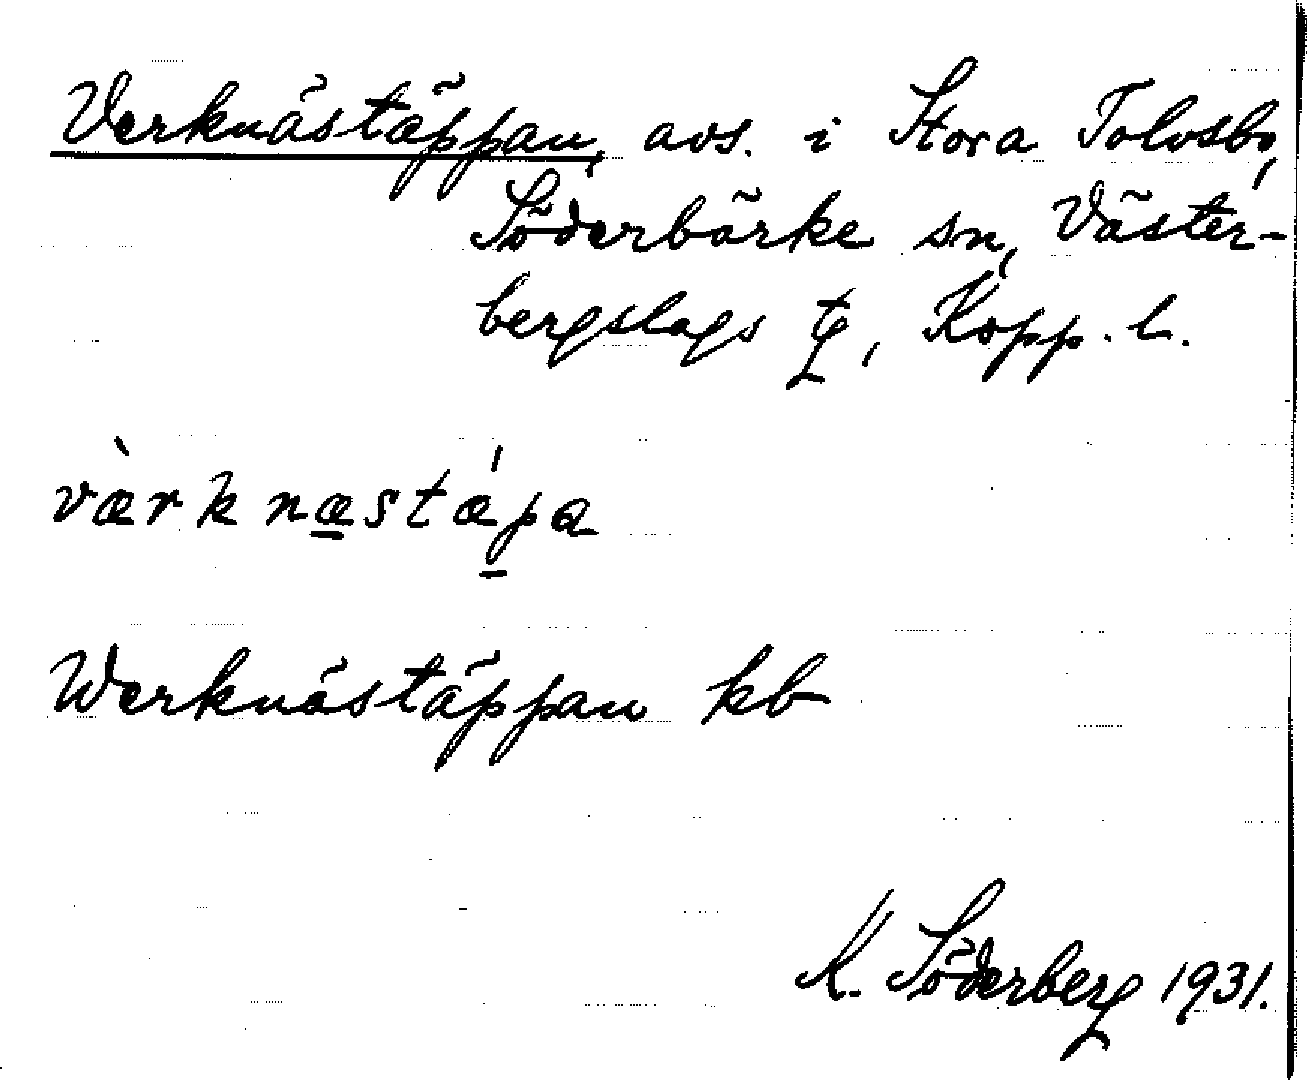 Verknästäppan, avs. i Stora Tolvsbo,
Söderbärke sn, Väster-
bergslags tg, Kopp. l.
vàrk næstǽpa
Werknästäppan kb
K. Söderberg 1931.